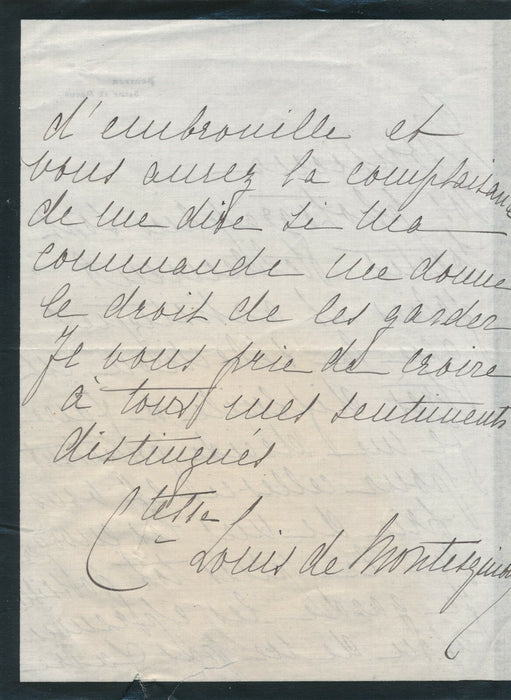 d'embrouille et
vous aurez la complaisance
de me dire si ma
commande me donne
le droit de les garder
Je vous prie de croire
à tous mes sentiments
distingués
Ctesse
Louis de Montesquiou